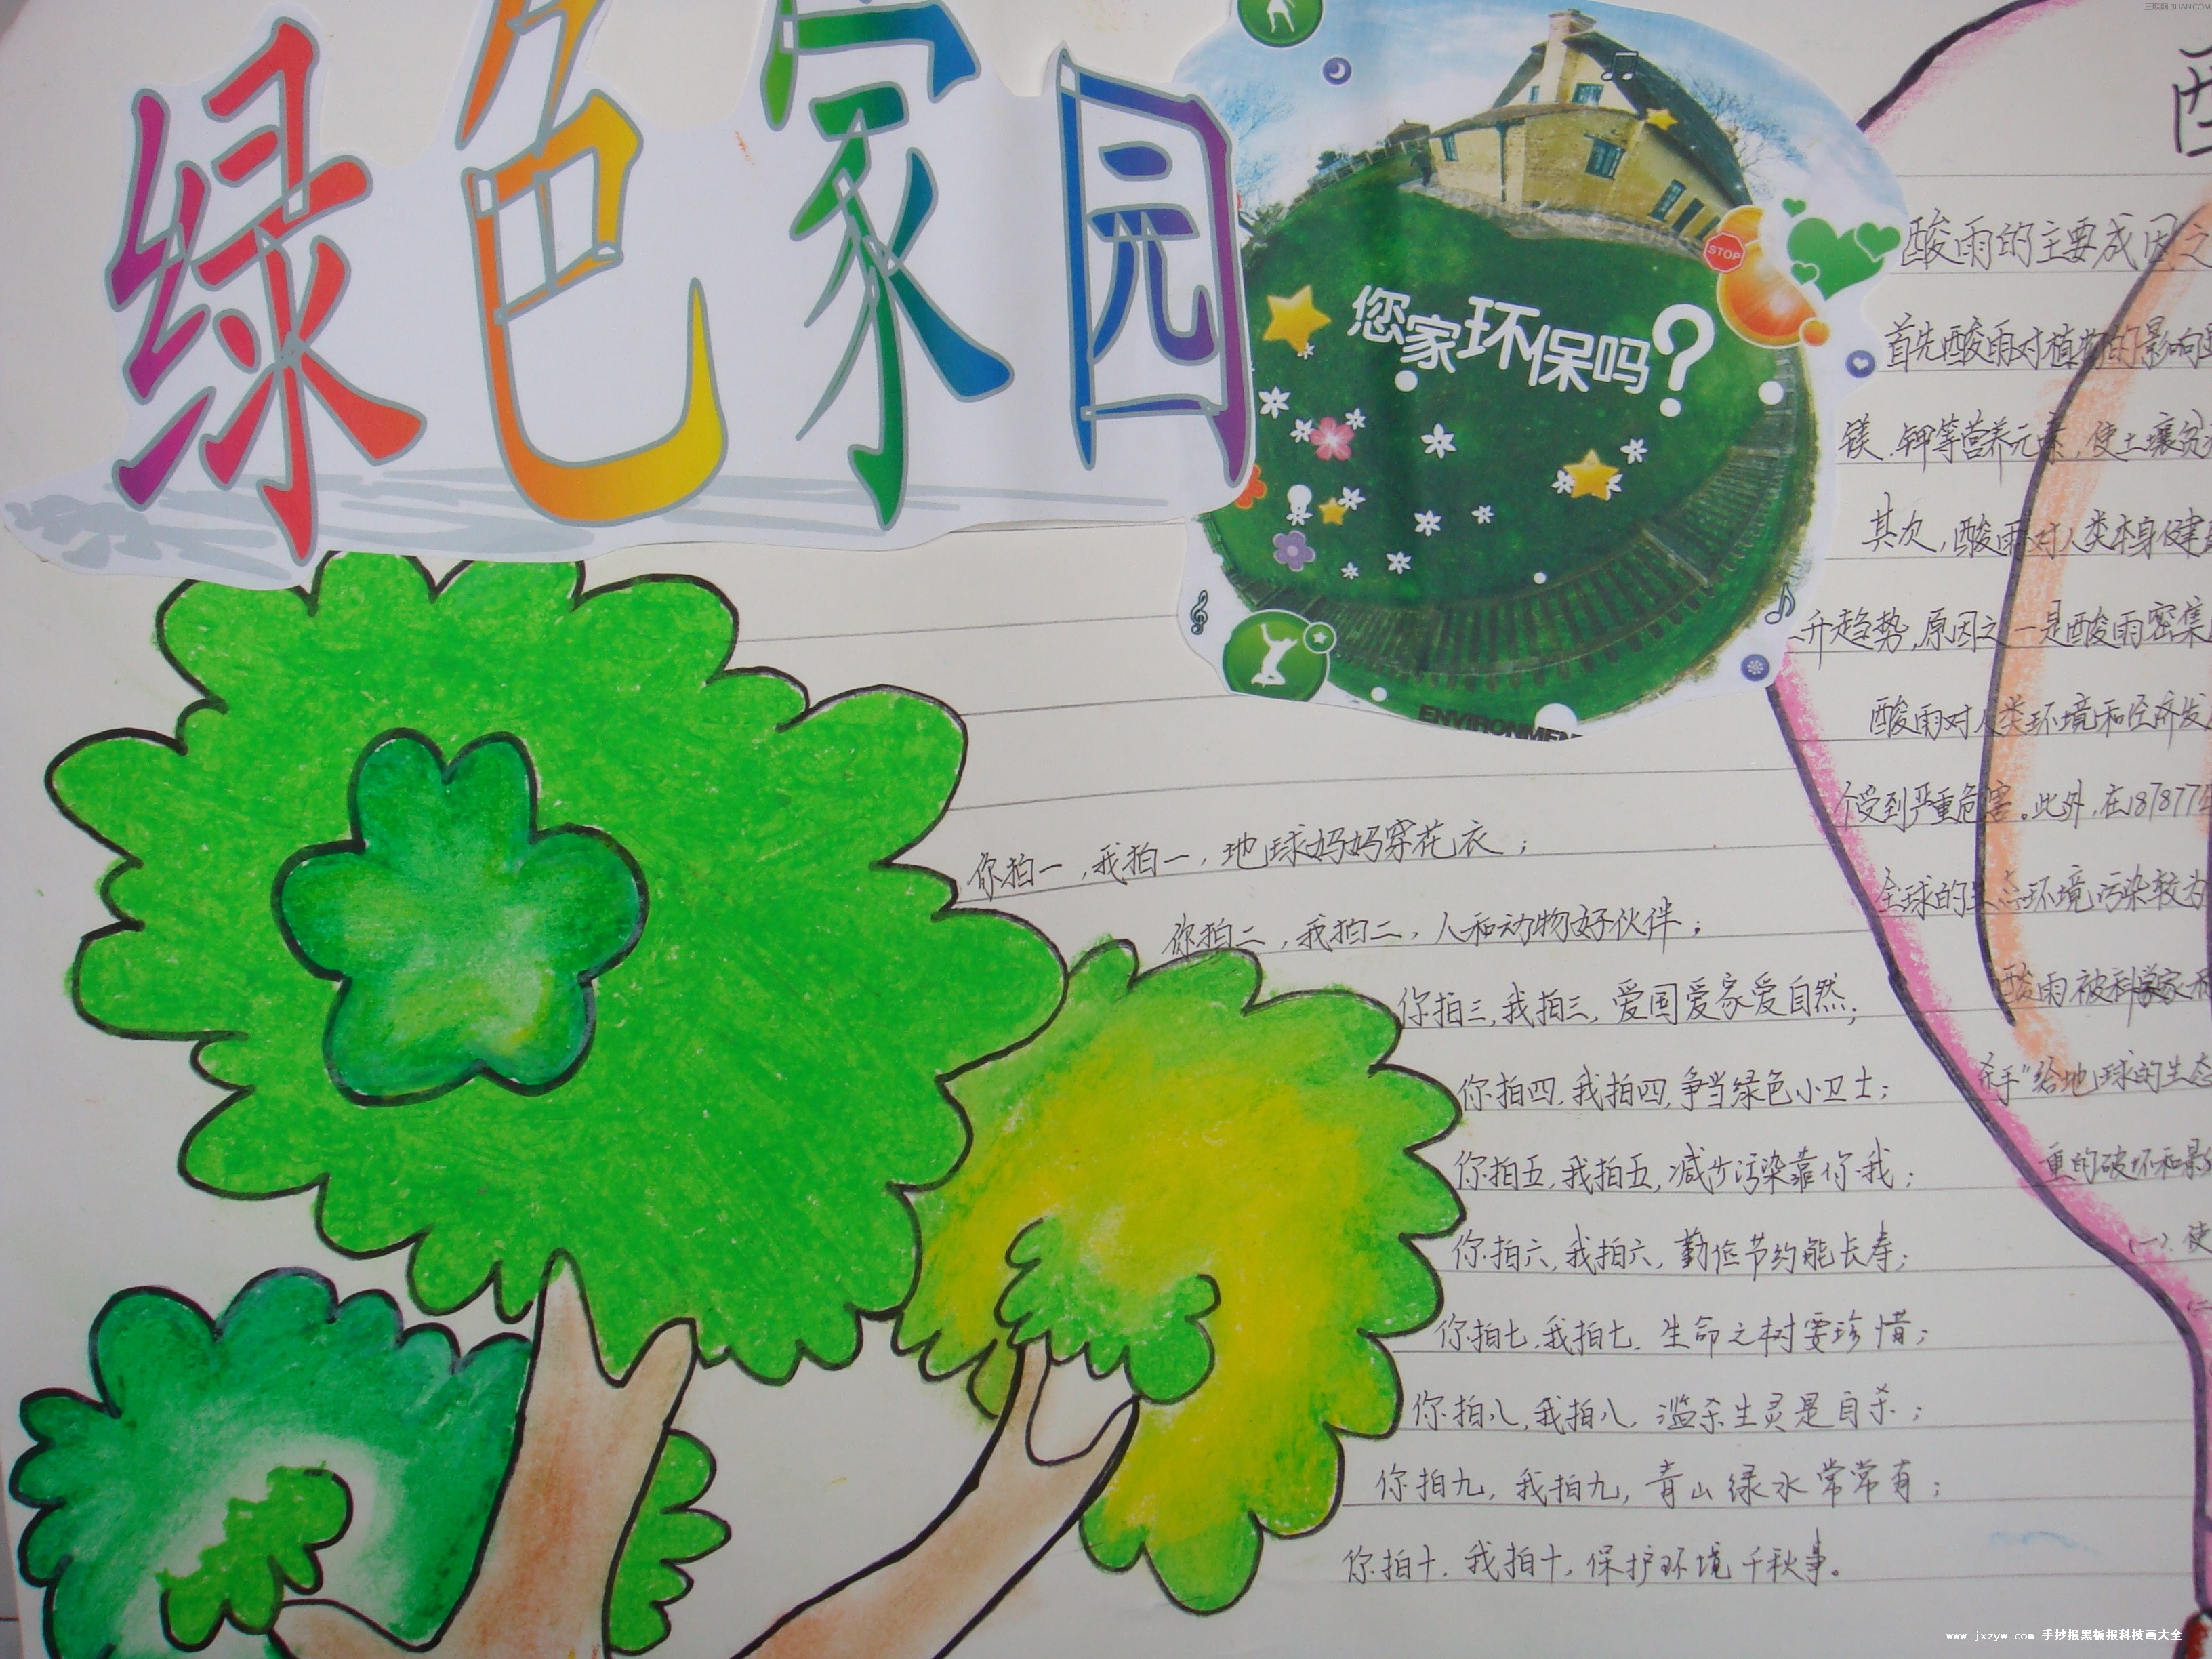 三联网 3LIAN.COM
绿色家园
您家环保吗?
STOP
ENVIRONMEN
你拍一,我拍一,地球妈妈穿花衣;
你拍二,我拍二,人和动物好伙伴;
你拍三,我拍三,爱国爱家爱自然;
你拍四,我拍四,争当绿色小卫士;
你拍五,我拍五,减少污染靠你我;
你拍六,我拍六,勤俭节约能长寿;
你拍七,我拍七,生命之树要珍惜;
你拍八,我拍八,滥杀生灵是自杀;
你拍九,我拍九,青山绿水常常有;
你拍十,我拍十,保护环境千秋事。
酸雨的主要成因之
首先酸雨对植物的影响
镁、钾等营养元素,使土壤贫
其次,酸雨对人类本身健
升趋势,原因之一是酸雨密集
酸雨对人类环境和经济发
个受到严重危害。此外,在1878
全球的生态环境污染较为
酸雨被科学家
杀手"给地球的生态
重的破坏和影
(一)使
www.jxzyw.com-手抄报黑板报科技画大全